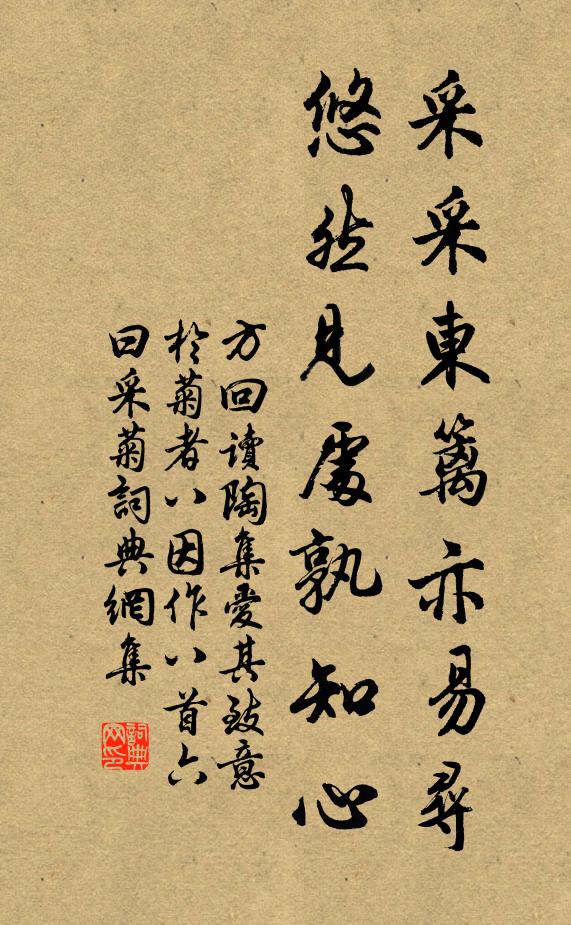 采采東籬亦易尋
悠然見處孰知心
方回讀陶集愛其致意
於菊者八因作八首六
曰采菊詞典網集
詞典
网印